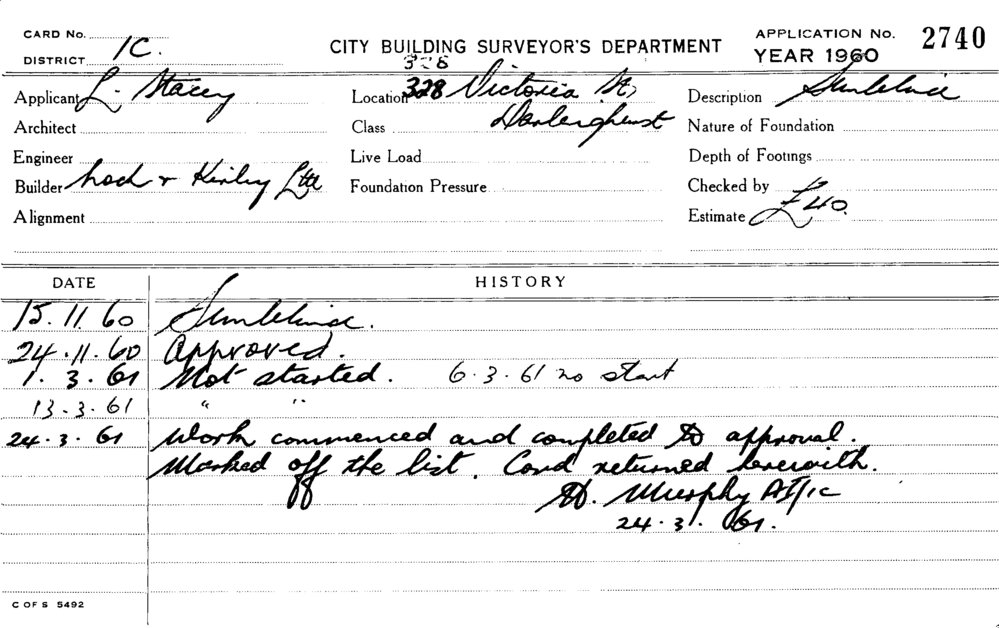 CARD No.
DISTRICT 1C.
CITY BUILDING SURVEYOR'S DEPARTMENT
APPLICATION No. 2740
YEAR 1960
328
Applicant L. Stacey
Location 328 Victoria St,
Description Sunblind
Architect
Class Darlinghurst
Nature of Foundation
Engineer
Live Load
Depth of Footings
Builder Loch & Kirby Ltd
Foundation Pressure
Checked by
Alignment
Estimate £40.
DATE HISTORY
15.11.60 Sunblind.
24.11.60 Approved.
1.3.61 Not started. 6.3.61 no start
13.3.61 " "
24.3.61 Work commenced and completed to approval.
Marked off the list. Card returned herewith.
Murphy
24.3.61.
C OF S 5492